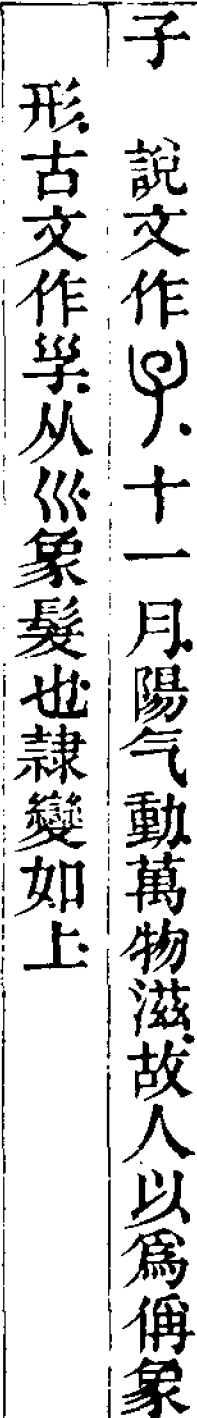 子 說文作𢀇十一月陽气動萬物滋故人以爲偁象
形古文作㜽从巛象髮也隸變如上